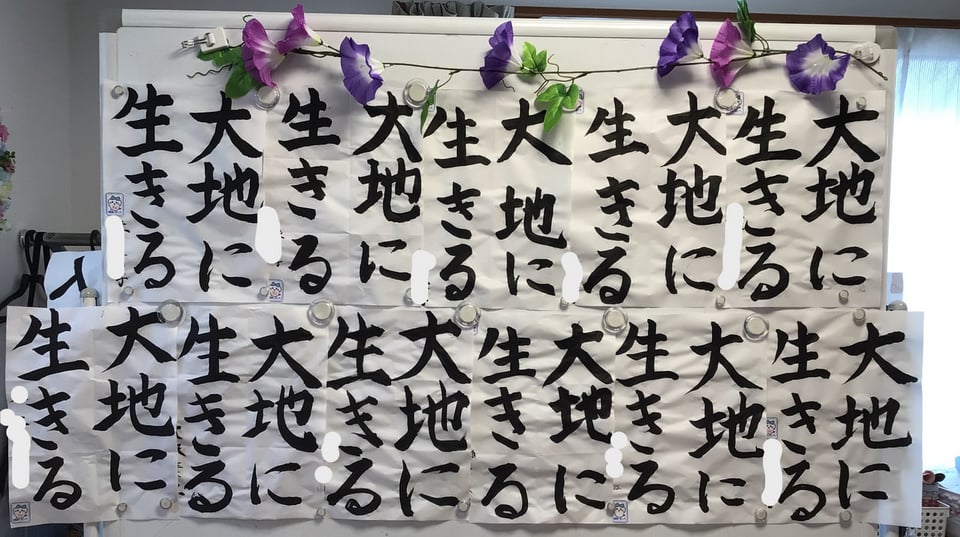 大地に
生きる
大地に
生きる
大地に
生きる
大地に
生きる
大地に
生きる
大地に
生きる
大地に
生きる
大地に
生きる
大地に
生きる
大地に
生きる
大地に
生きる